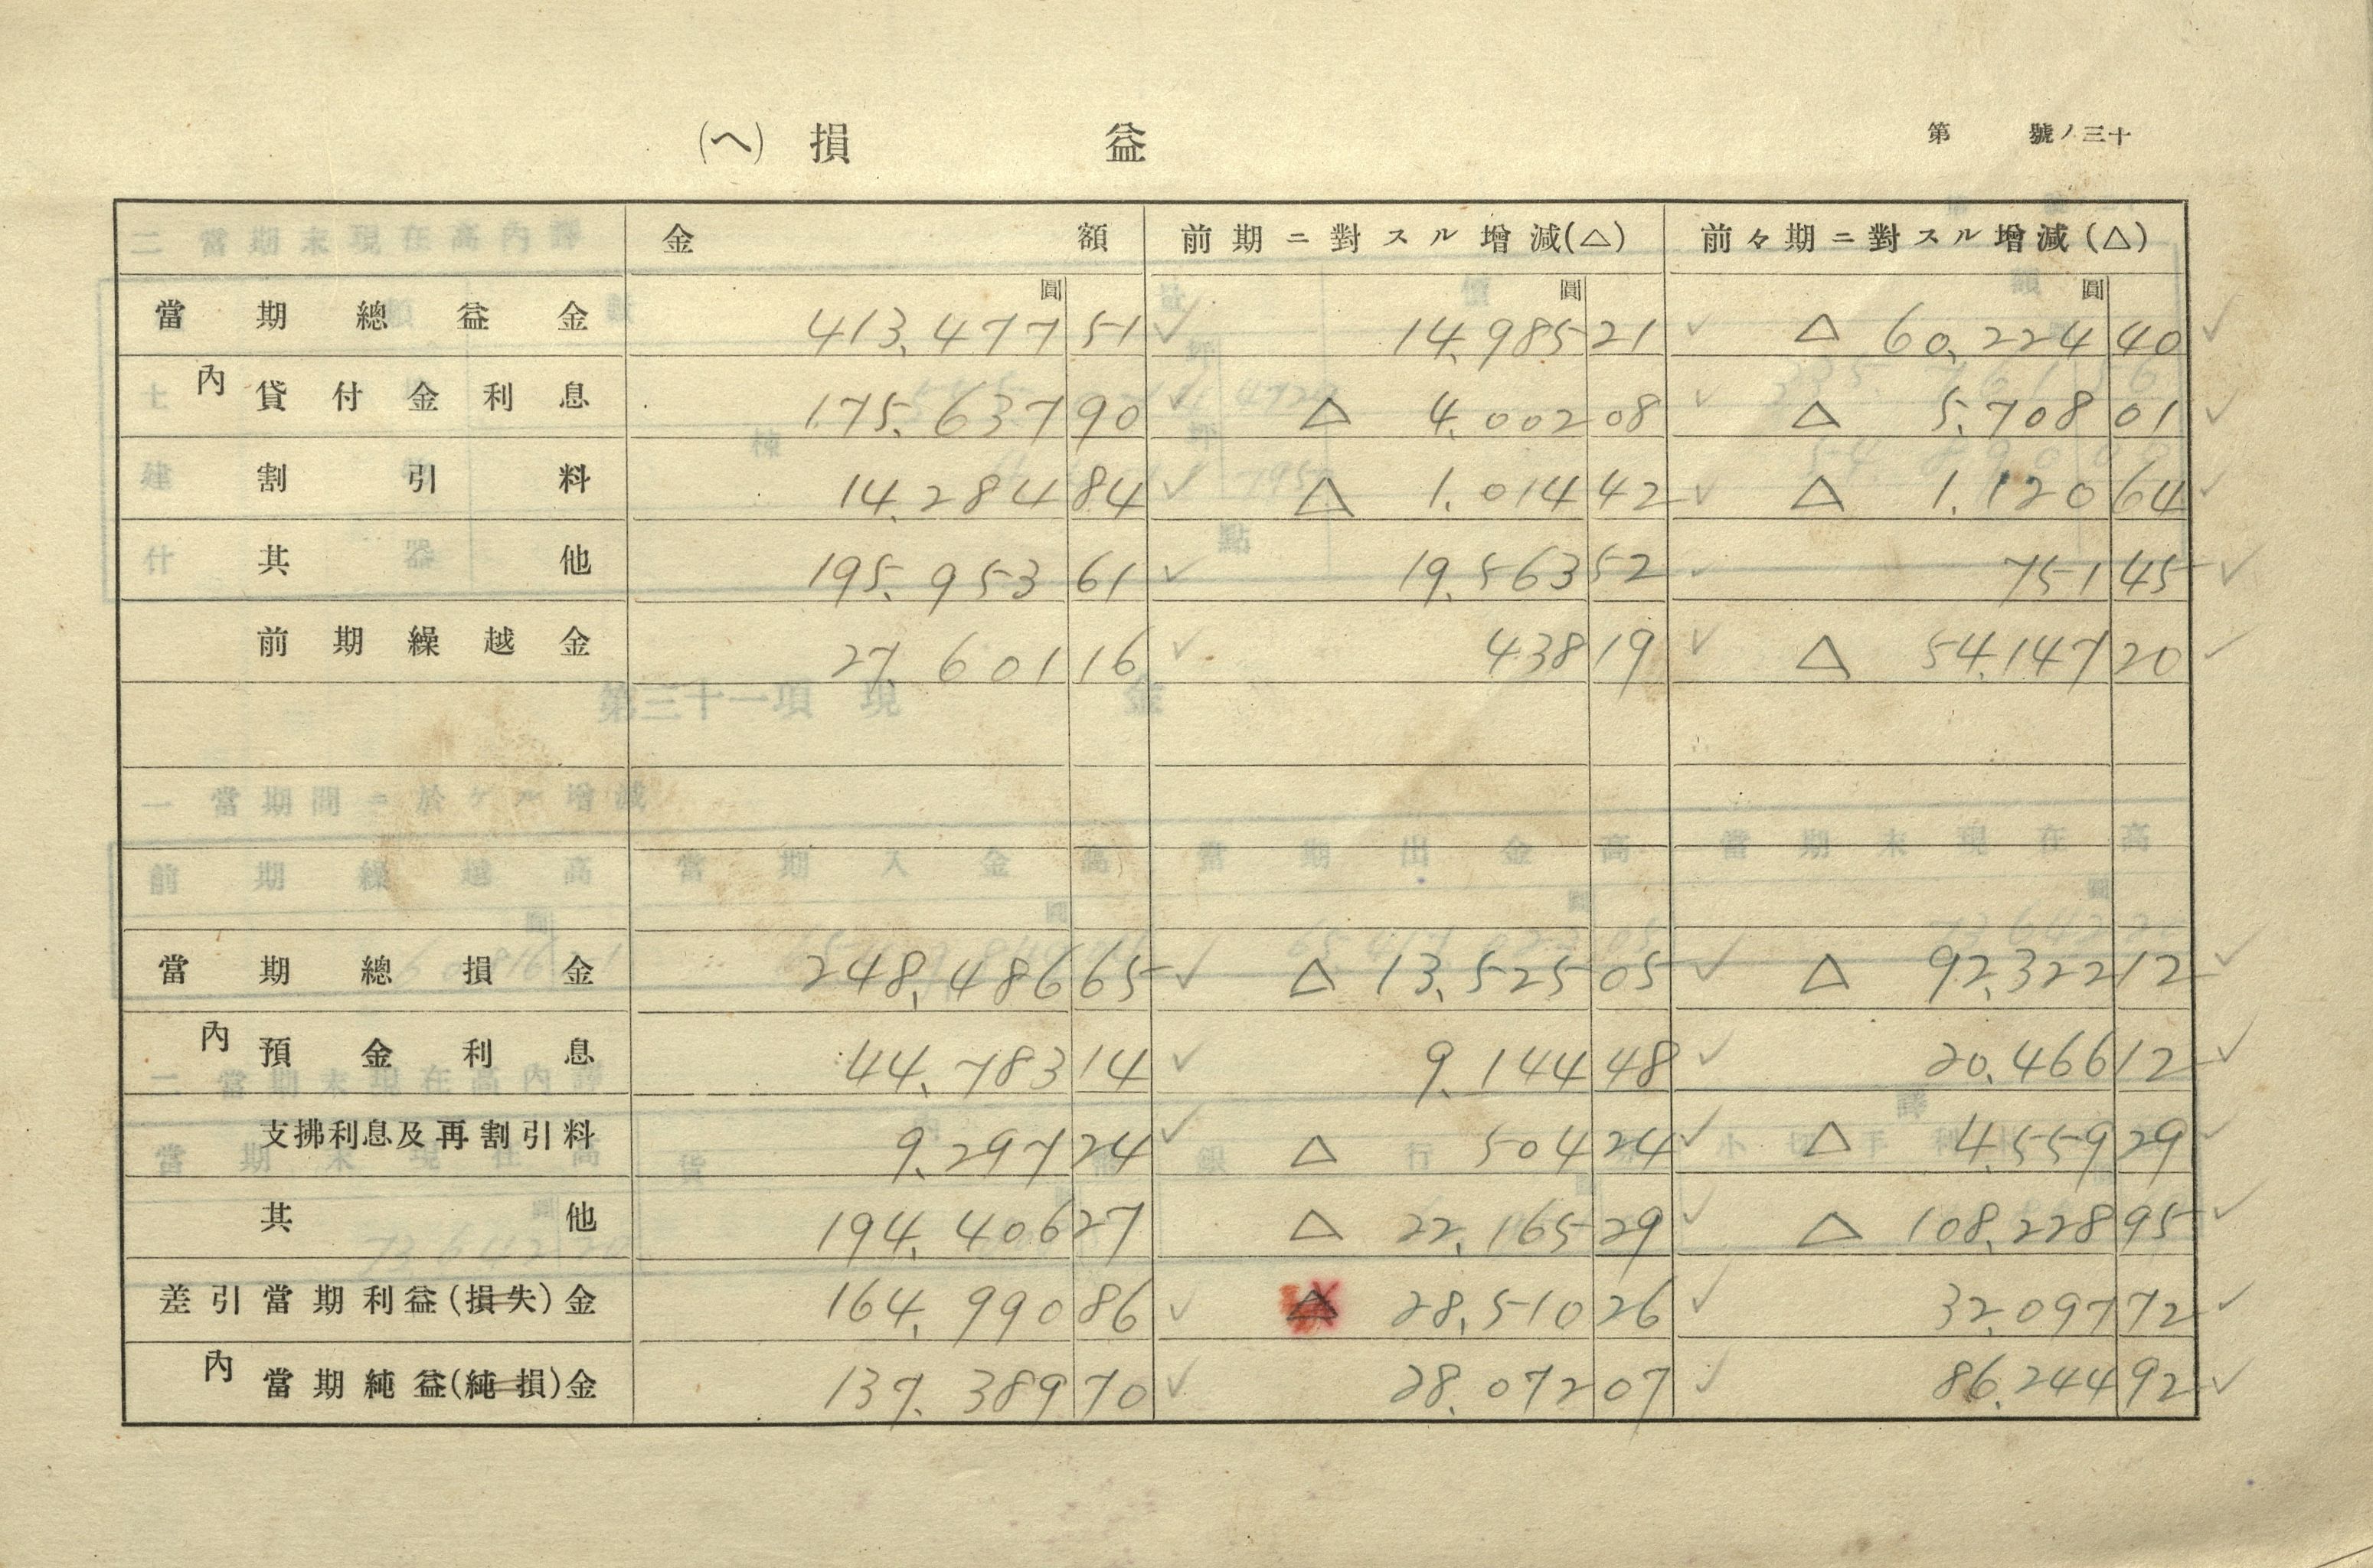 (ヘ) 損 益
第 號ノ三十
金 額 前期ニ對スル增減(△) 前々期ニ對スル增減(△)
當期總益金 圓 413,477 51 ✓ 圓 14,985 21 ✓ 圓 △ 60,224 40 ✓
內 貸付金利息 175,637 90 ✓ △ 4,002 08 ✓ △ 5,708 01 ✓
割引料 14,284 84 ✓ △ 1,014 42 ✓ △ 1,120 64 ✓
其他 195,953 61 ✓ 19,563 52 ✓ 751 45 ✓
前期繰越金 27,601 16 ✓ 438 19 ✓ △ 54,147 20 ✓
當期總損金 248,486 65 ✓ △ 13,525 05 ✓ △ 92,322 12 ✓
內 預金利息 44,783 14 ✓ 9,144 48 ✓ 20,466 12 ✓
支拂利息及再割引料 9,297 24 ✓ △ 504 24 ✓ △ 4,559 29 ✓
其他 194,406 27 △ 22,165 29 ✓ △ 108,228 95 ✓
差引當期利益(損失)金 164,990 86 ✓ 28,510 26 ✓ 32,097 72 ✓
內 當期純益(純損)金 137,389 70 ✓ 28,072 07 ✓ 86,244 92 ✓